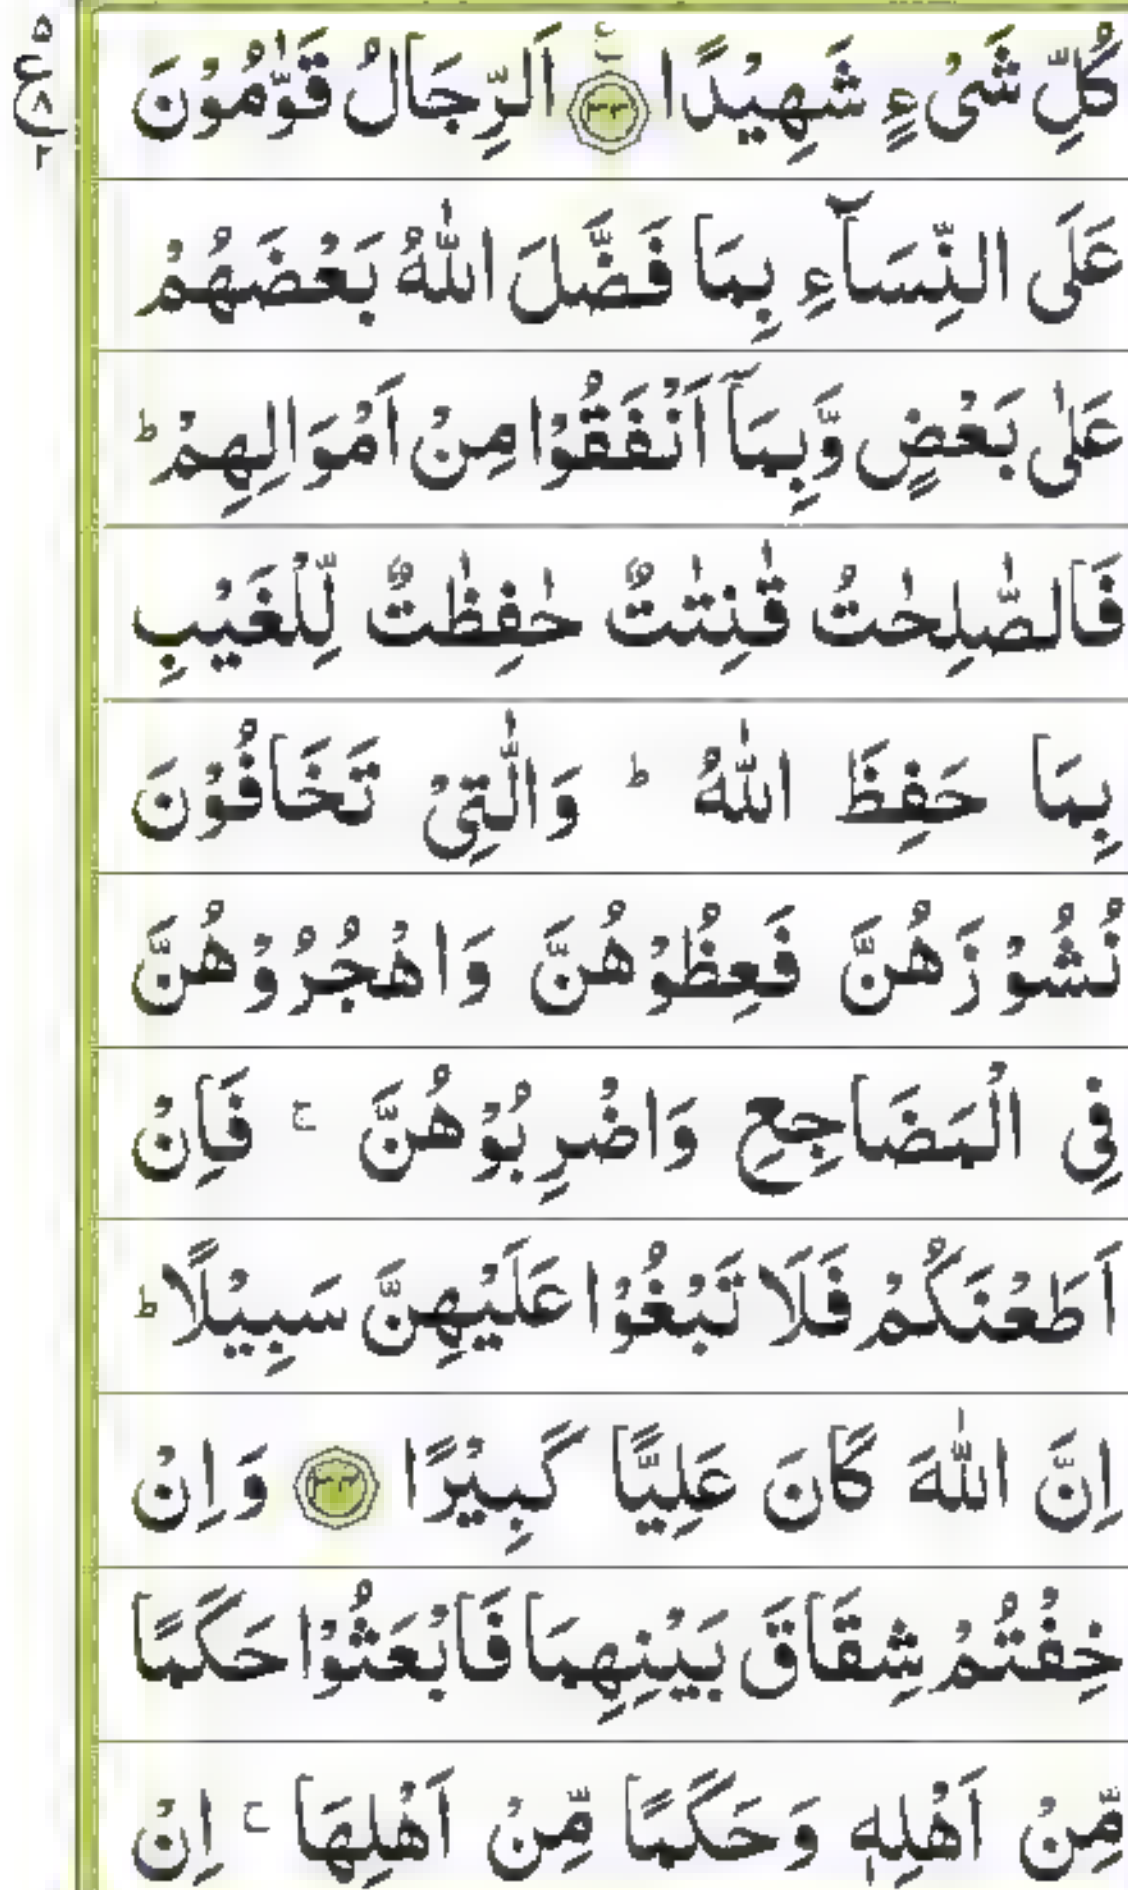 كُلِّ شَىْءٍ شَهِيْدًا ۝٣٣ اَلرِّجَالُ قَوّٰمُوْنَ
عَلَى النِّسَآءِ بِمَا فَضَّلَ اللّٰهُ بَعْضَهُمْ
عَلٰى بَعْضٍ وَّبِمَآ اَنْفَقُوْا مِنْ اَمْوَالِهِمْ ؕ
فَالصّٰلِحٰتُ قٰنِتٰتٌ حٰفِظٰتٌ لِّلْغَيْبِ
بِمَا حَفِظَ اللّٰهُ ؕ وَالّٰتِىْ تَخَافُوْنَ
نُشُوْزَهُنَّ فَعِظُوْهُنَّ وَاهْجُرُوْهُنَّ
فِى الْمَضَاجِعِ وَاضْرِبُوْهُنَّ ۚ فَاِنْ
اَطَعْنَكُمْ فَلَا تَبْغُوْا عَلَيْهِنَّ سَبِيْلًا ؕ
اِنَّ اللّٰهَ كَانَ عَلِيًّا كَبِيْرًا ۝٣٤ وَاِنْ
خِفْتُمْ شِقَاقَ بَيْنِهِمَا فَابْعَثُوْا حَكَمًا
مِّنْ اَهْلِهٖ وَحَكَمًا مِّنْ اَهْلِهَا ۚ اِنْ